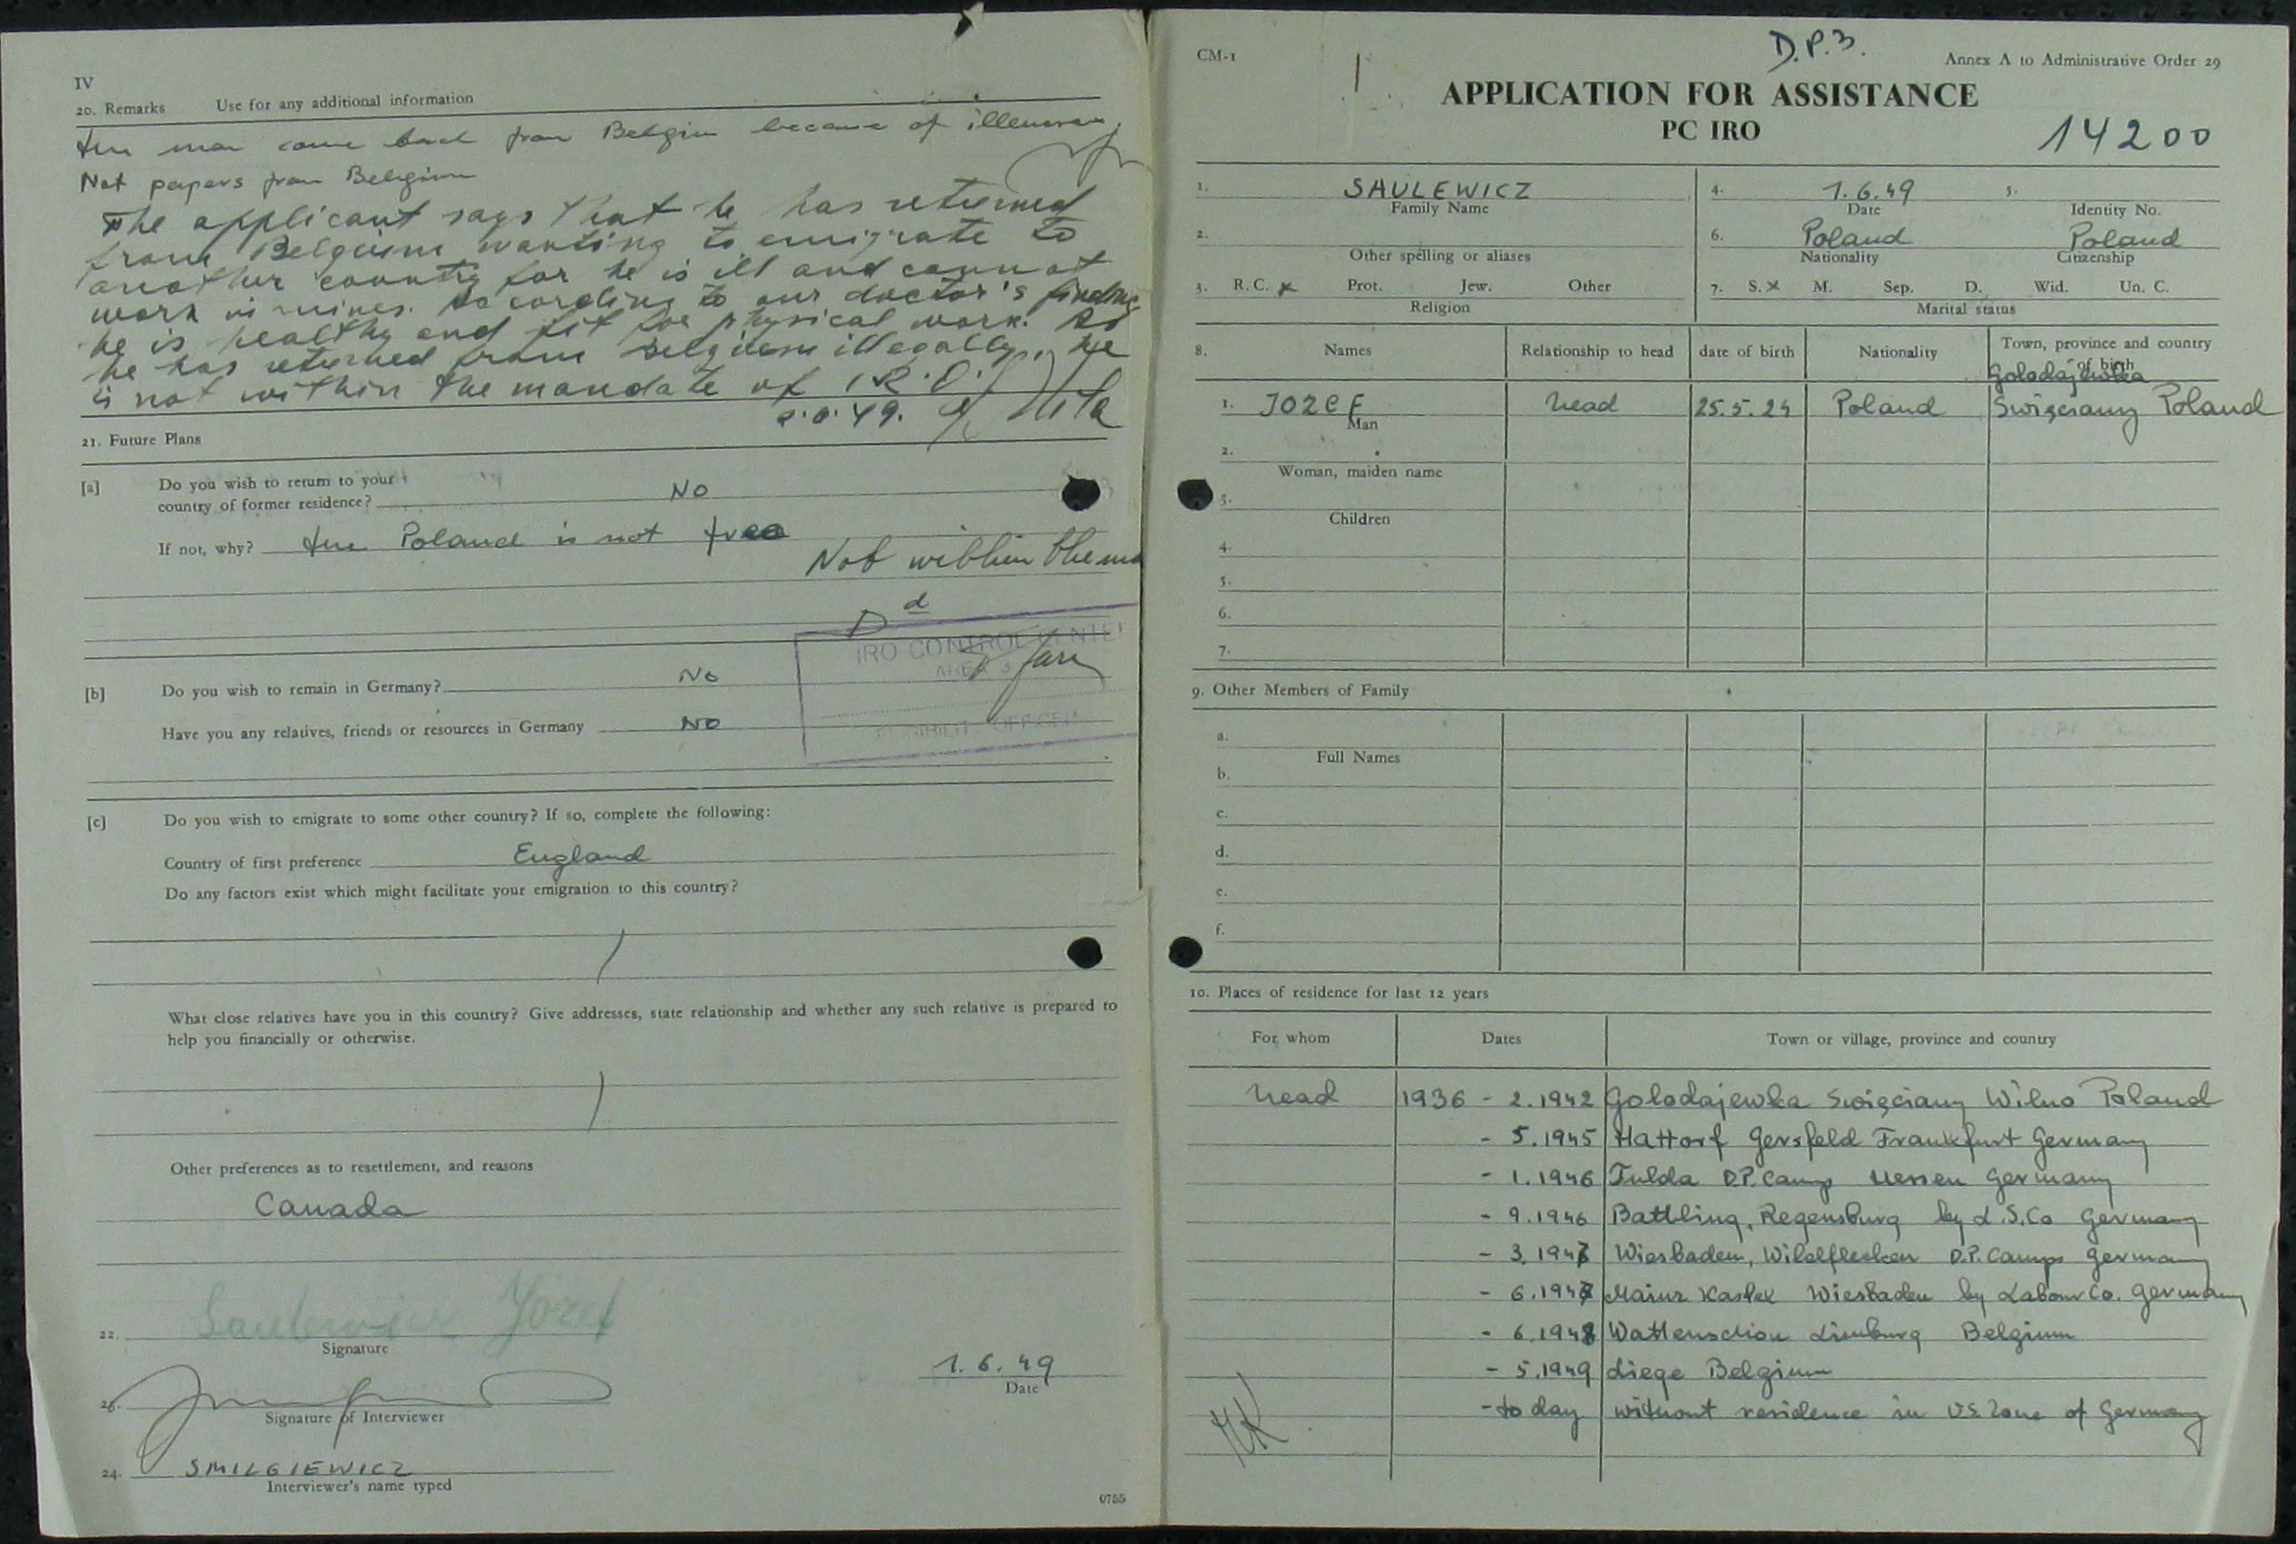 IV
20. Remarks Use for any additional information
the man came back from Belgium because of
Not papers from Belgium
The applicant says that he has returned
from Belgium wanting to emigrate to
another country for he is ill and cannot
work in mines. According to our doctor's finding
he is healthy and fit for physical work. As
he has returned from Belgium illegally, he
is not within the mandate of I.R.O.
21. Future Plans
[a] Do you wish to return to your
country of former residence? No
If not, why? the Poland is not free
Not within the ma
D d
IRO CONTROL CENTE
AREA 3
ELIGIBILITY OFFICER
[b] Do you wish to remain in Germany? No
Have you any relatives, friends or resources in Germany NO
[c] Do you wish to emigrate to some other country? If so, complete the following:
Country of first preference England
Do any factors exist which might facilitate your emigration to this country?
What close relatives have you in this country? Give addresses, state relationship and whether any such relative is prepared to
help you financially or otherwise.
Other preferences as to resettlement, and reasons
Canada
22. Saulewicz Józef
Signature
1. 6. 49
Date
23.
Signature of Interviewer
24. SMILGIEWICZ
Interviewer's name typed
0755
CM-1 D.P.3. Annex A to Administrative Order 29
APPLICATION FOR ASSISTANCE
PC IRO
14200
1. SAULEWICZ 4. 1.6.49 5.
Family Name Date Identity No.
2. 6. Poland Poland
Other spelling or aliases Nationality Citizenship
3. R.C. x Prot. Jew. Other 7. S. x M. Sep. D. Wid. Un. C.
Religion Marital status
8. Names Relationship to head date of birth Nationality Town, province and country
of birth
Golodajewka
1. JOZEF head 25.5.24 Poland Święciany Poland
Man
2.
Woman, maiden name
3.
Children
4.
5.
6.
7.
9. Other Members of Family
a.
Full Names
b.
c.
d.
e.
f.
10. Places of residence for last 12 years
For whom Dates Town or village, province and country
head 1936 - 2.1942 Golodajewka Święciany Wilno Poland
- 5.1945 Hattorf Gersfeld Frankfurt Germany
- 1.1946 Fulda D.P. Camp Hessen Germany
- 9.1946 Battling, Regensburg by L.S.Co Germany
- 3.1947 Wiesbaden, Wildflecken D.P. Camps Germany
- 6.1947 Mainz Kastel Wiesbaden by Labour Co. Germany
- 6.1948 Limburg Belgium
- 5.1949 Liege Belgium
- to day without residence in US Zone of Germany